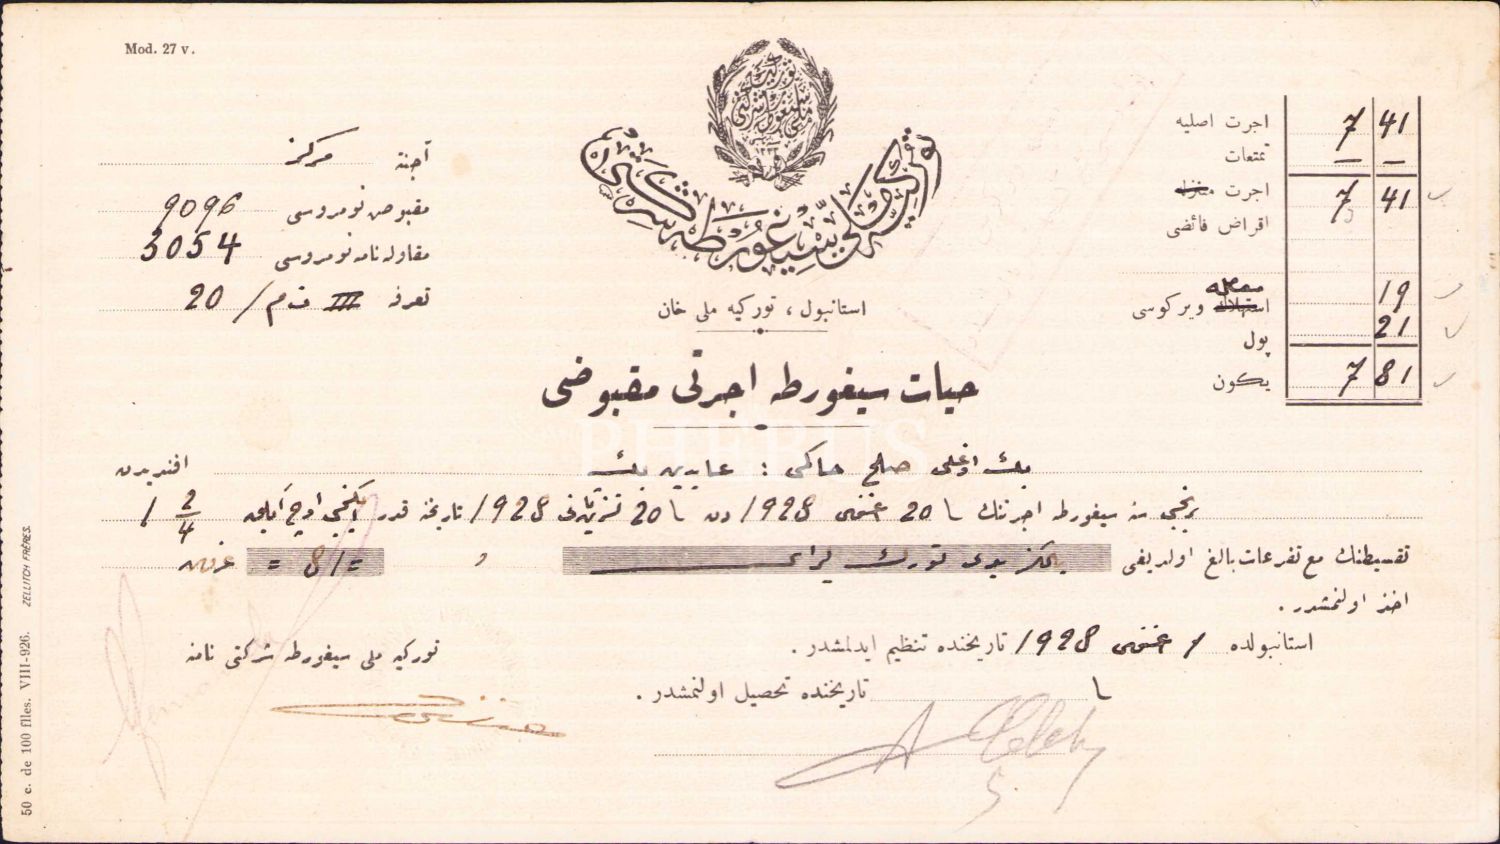 Mod. 27 v.
توركيه ملی سیغورطه شركتی
آجنته مركز
مقبوض نومروسی 9096
مقاوله‌نامه نومروسی 3054
تعرفه III / 20
اجرت اصلیه 7 41
تمتعات — —
اجرت 7 41
اقراض فائضی
معامله
استهلاك ویركوسی 19
پول 21
یكون 7 81
استانبول ، توركیه ملی خان
حیات سیغورطه اجرتی مقبوضی
PHEBUS
بك اوغلی صلح حاكمی : عابدین بك افندیدن
برنجی سنه سیغورطه اجرتنك 20 1928 دن 20 تشرین ثانی 1928 تاریخنه قدر ایكنجی اوچ آیلق 2/4 1
تقسیطنك مع تفرعات بالغ اولدیغی یالكز یدی تورك لیرای و = 81 = غروش
اخذ اولنمشدر .
استانبولده 1 1928 تاریخنده تنظیم ایدلمشدر .
توركیه ملی سیغورطه شركتی نامنه
تاریخنده تحصیل اولنمشدر .
50 c. de 100 flles. VIII-926. ZELLITCH FRÈRES.